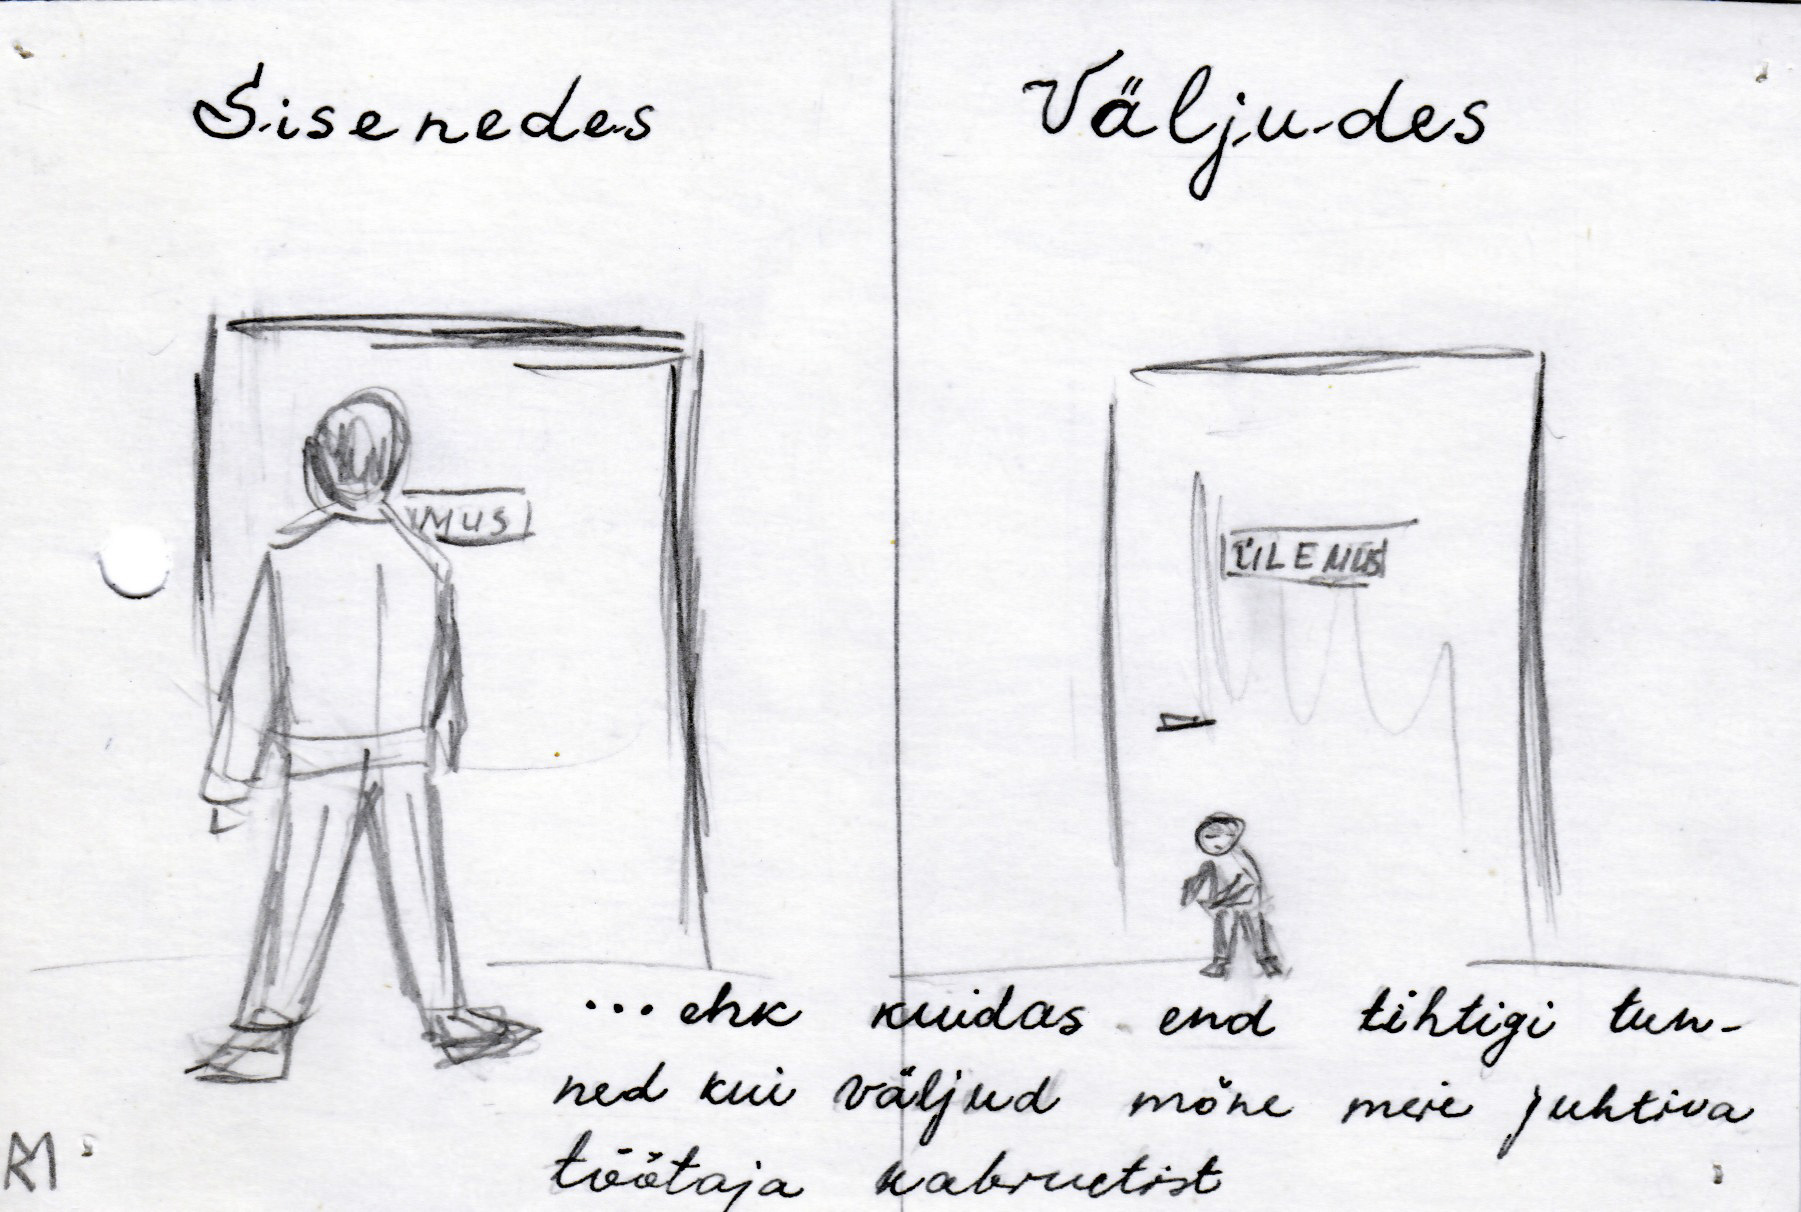 Sisenedes
Väljudes
MUS
ÜLEMUS
...ehk kuidas end tihtigi tun-
ned kui väljud mõne meie juhtiva
töötaja kabinetist
RM